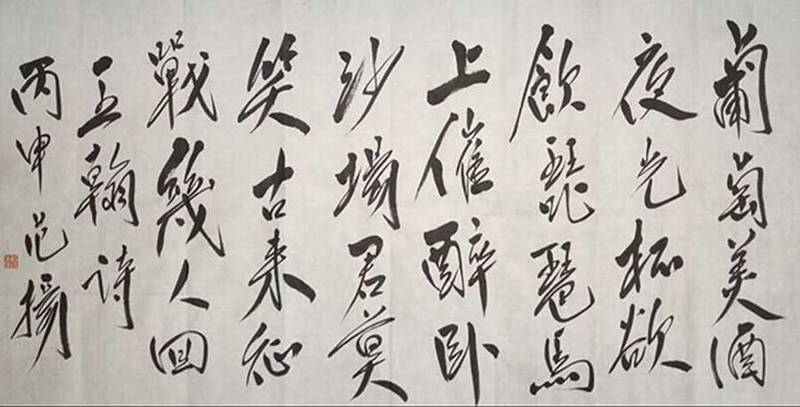 葡萄美酒
夜光杯欲
飲琵琶馬
上催醉臥
沙場君莫
笑古來征
戰幾人回
王翰詩
丙申范揚